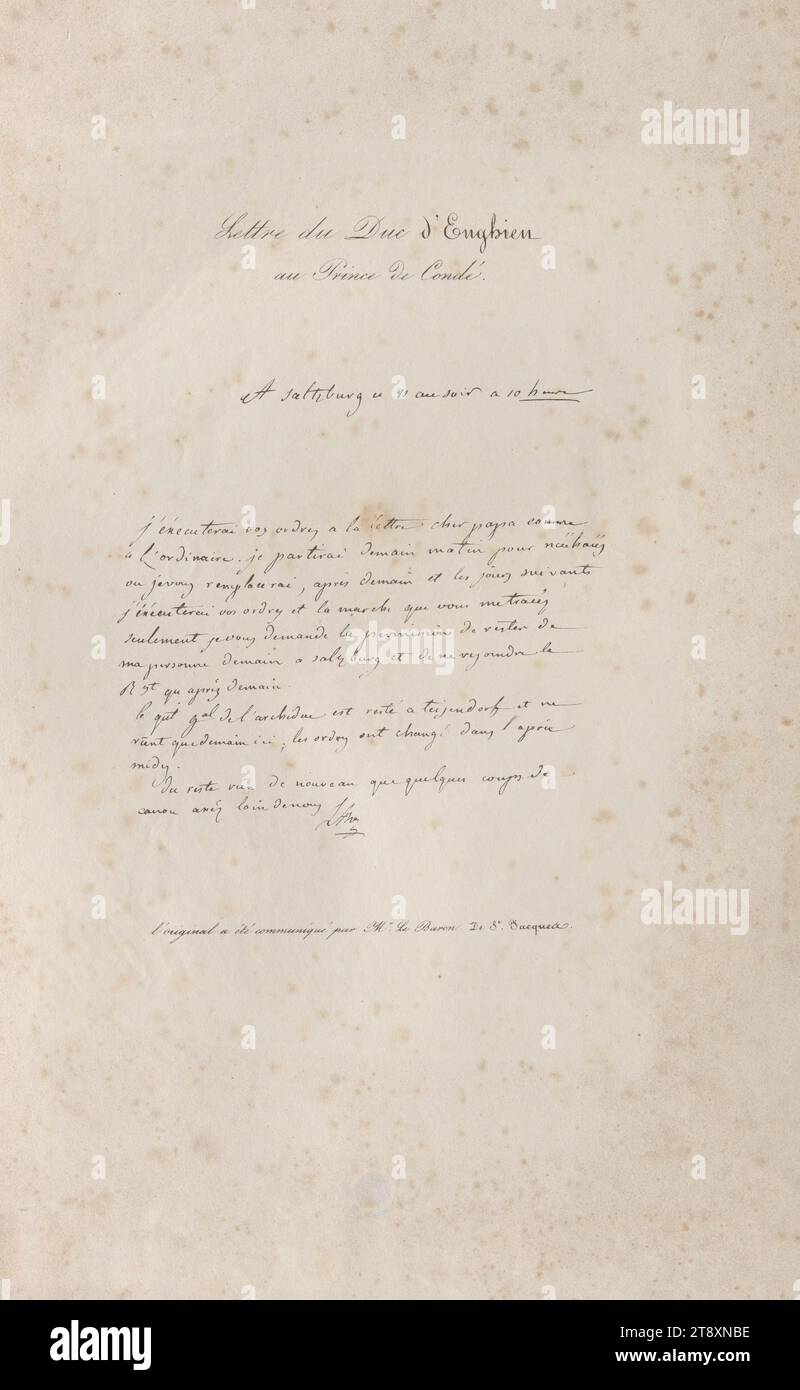 Lettre du Duc d'Enghien
au Prince de Condé.
A saltzburg ce au soir a 10 heure
j'éxecuterai vos ordres a la lettre cher papa comme
a L'ordinaire. je partirai demain matin pour
ou je vous remplacerai, après demain et les jours suivants
j'éxécuterai vos ordres et la marche que vous me tracés
seulement je vous demande la permission de rester de
ma personne demain a saltzburg et de ne rejoindre le
R gt qu'après demain.
le qer gal de l'archiduc est resté a teisendorf et ne
vient que demain ici; les ordres ont changé dans l'après
midy.
du reste rien de nouveau que quelques coups de
canon assés loin de nous
l'original a été communiqué par Mr. Le Baron De St. Jacques.
alamy
Image ID: 2T8XNBE
www.alamy.com